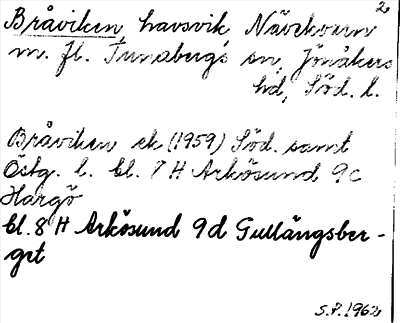 2
Bråviken, havsvik Nävekvarn
m. fl. Tunabergs sn, Jönåkers
hd, Söd. l.
Bråviken ek (1959) Söd. samt
Östg. l. bl. 8 H Arkösund 9c
Hargö
bl. 8 H Arkösund 9d Gullängsber-
get
S.P. 1962